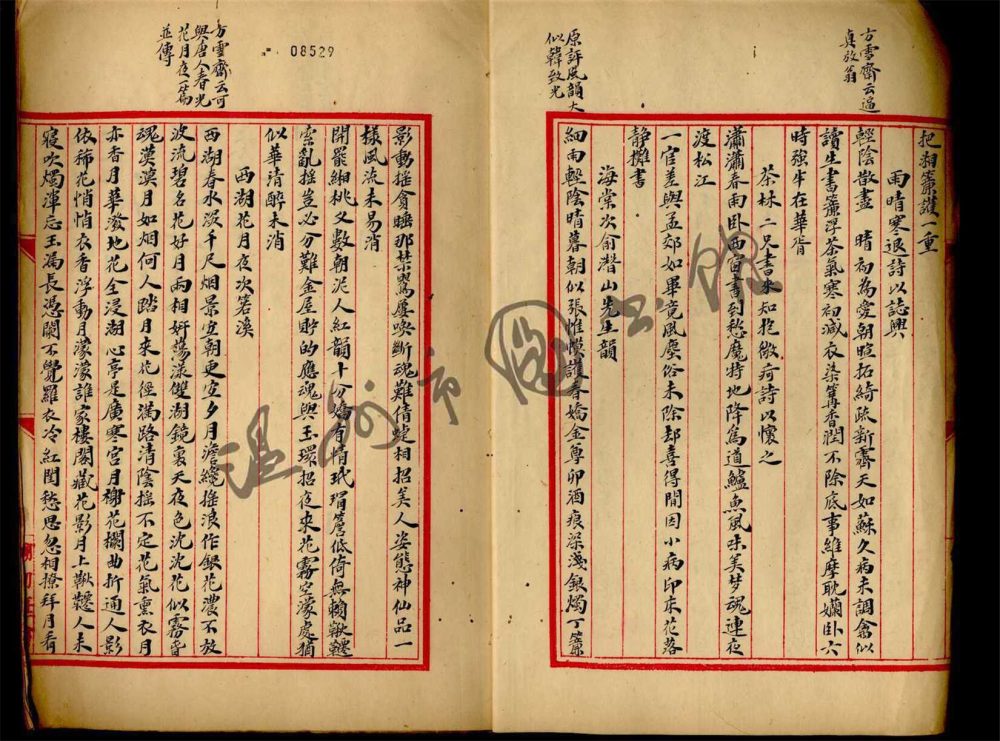 方雪齋云逼
真放翁
把湘簾護一重
雨晴寒退詩以誌興
輕陰散盡 晴初為愛朝暄拓綺疏新霽天如蘇久病未調禽似
讀生書簾浮茶氣寒初減衣染篝香潤不除底事維摩耽嬾臥六
時強半在華胥
茶林二兄書來知抱微疴詩以懷之
瀟瀟春雨臥西窗書到愁魔特地降爲道鱸魚風味美梦魂連夜
渡松江
一官差與孟郊如畢竟風塵俗未除却喜得閒因小病印床花落
靜攤書
海棠次俞潛山先生韻
原評風韻大
似韓致光
細雨輕陰晴暮朝似張帷幙護春嬌金尊卯酒痕深淺銀燭丁簾
影動搖貪睡那禁鶯屢喚斷魂難倩蝶相招美人姿態神仙品一
樣風流未易消
開罷緗桃又數朝泥人紅韻十分嬌有情玳瑁簷低倚無賴鞦韆
索亂搖豈必分難金屋貯的應魂與玉環招夜來花霧空濛處猶
似華清醉未消
西湖花月夜次箬溪
方雪齋云可
與唐人春光
花月夜一篇
並傳
西湖春水深千尺烟景宜朝更宜夕月澹纔搖浪作銀花濃不放
波流碧名花好月兩相妍蕩漾雙湖鏡裏天夜色沈沈花似霧香
魂漠漠月如烟何人踏月來花徑滿路清陰搖不定花氣熏衣月
亦香月華潑地花全浸湖心亭是廣寒宮月榭花欄曲折通人影
依稀花悄悄衣香浮動月濛濛誰家樓閣藏花影月上鞦韆人未
寢吹燭渾忘玉漏長憑闌不覺羅衣冷紅閨愁思忽相撩拜月看
08529
溫州市圖書館